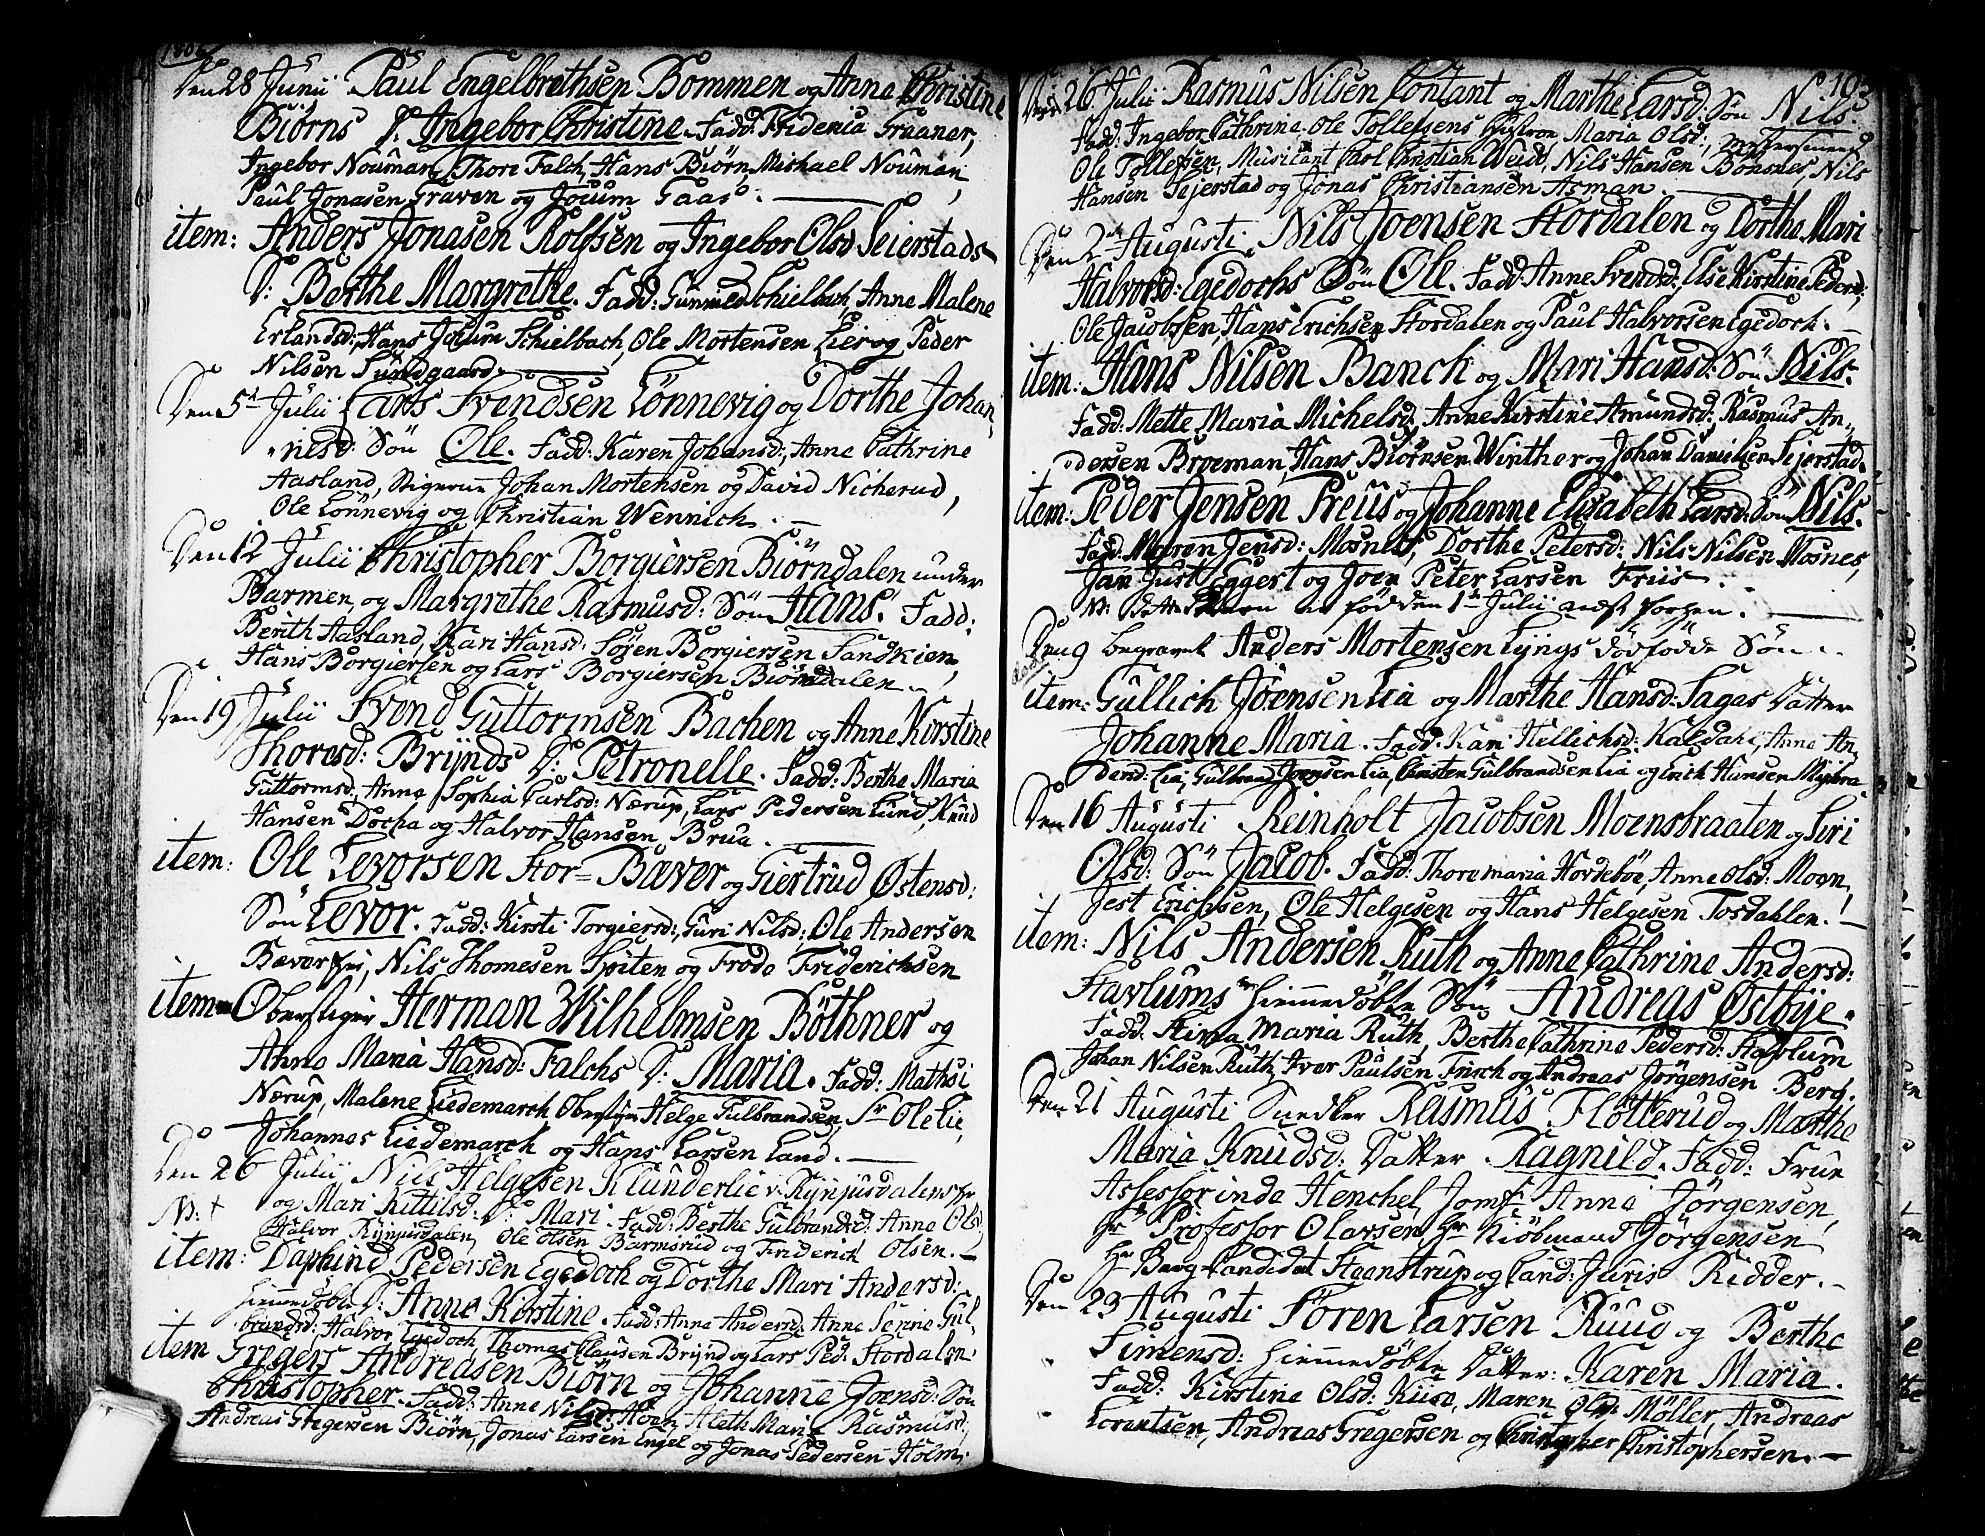 1806
Den 28 Junii Paul Engelbrethsen Bommen og Anne Christine
Biørns D: Ingebor Christine. Fadd: Fridericia Graaner,
Ingebor Nouman, Thore Falch, Hans Biørn, Michael Nouman,
Paul Jonasen Graven og Jocum Gaas.
item: Anders Jonasen Rolfsen og Ingebor Olsd Seierstads
D: Berthe Margrethe. Fadd: Schielbach, Anne Malene
Erlandsd:, Hans Jocum Schielbach, Ole Mortensen Lier og Peder
Nilsen Sundgaard.
Den 5t Julii Lars Svendsen Lønnevig og Dorthe Johan
nesd: Søn Ole. Fadd: Karen Johansd:, Anne Cathrine
Aasland, Stigerne Johan Mortensen og David Nicherud,
Ole Lønnevig og Christian Wennich.
Den 12 Julii Christopher Borgiersen Biørndalen under
Barmen, og Margrethe Rasmusd: Søn Hans. Fadd:
Berith Aasland, Kari Hansd: Søren Borgiersen Sandkien,
Hans Borgiersen og Lars Borgiersen Biørndalen.
Den 19 Julii Svend Guttormsen Bachen og Anne Kirstine
Thoresd: Brynds D: Petronelle. Fadd: Berthe Maria
Guttormsd, Anne Sophia Carlsd: Nærup, Lars Pedersen Lund, Knud
Hansen Docha og Halvor Hansen Brua.
item: Ole Levorsen Stor=Bæver og Giertrud Østensd:
Søn Levor. Fadd: Kirsti Torgiersd:, Guri Nilsd:, Ole Andersen
Bæver, Nils Thomesen Spiten og Frode Friderichsen
item Oberstiger Herman Wilhelmsen Bøthner og
Anne Maria Hansd: Falchs D: Maria. Fadd: Mathsi
Nærup, Malene Liedemarch Oberstiger Helge Gulbrandsen, Sr Ole Lie,
Johannes Liedemarch og Hans Larsen Land.
Den 26 Julii Nils Helgesen Klunderlie v. Rynjusdalens
N: † og Mari Kittilsd: D: Mari. Fadd: Berthe Gulbrandsd: Anne Olsd
Halvor Rynjusdalen, Ole Olsen Barmisrud og Friderich Olsen.
item: Daphind Pedersen Egedoch og Dorthe Mari Andersd:
hiemmedøbte D: Anne Kirstine. Fadd: Anne Andersd: Anne Serine Gul-
brandsd: Halvor Egedoch, Thomas Clausen Brynd og Lars Ped: Stordalen
item Gregers Andreasen Biørn og Johanne Joensd: Søn
Christopher. Fadd: Anne Nilsd: Hoen, Aleth Marie Rasmusd:,
Andreas Gregersen Biørn, Jonas Larsen Engel og Jonas Pedersen Holm.
Den 26 Julii Rasmus Nilsen Contant og Marthe Larsd: Søn Nils.
Fadd: Ingebor Cathrine Ole Tollefsens Hustroe Maria Olsd:,
Ole Tollefsen, Musicant Carl Christian Weid, Nils Hansen Bonsnes, Nils
Hansen Sejerstad og Jonas Christiansen Asman.
Den 2den Augusti Nils Joensen Stordalen og Dorthe Mari
Halvorsd: Egedochs Søn Ole. Fadd: Anne Svendsd:, Else Kirstine Pedersd:,
Ole Jacobsen, Hans Erichsen Stordalen og Paul Halvorsen Egedoch.
item: Hans Nilsen Banch og Mari Hansd: Søn Nils.
Fadd: Mette Maria Michelsd:, Anne Kirstine Amundsd: Rasmus An-
dersen Broeman, Hans Biørnsen Winther og Johan Danielsen Sejerstad.
item: Peder Jensen Freiis og Johanne Elisabeth Larsd: Søn Nils.
Fadd: Maren Jensd: Mosnes, Dorthe Petersd: Nils Nilsen Mosnes,
Jan Just Eggert og Joen Peter Larsen Friis.
N: Dette er født den 1te Julii
Den 9 begravet Anders Mortensen Lyngs dødfødde Søn
item: Gullich Joensen Lia og Marthe Hansd: Sagas Datter
Johanne Maria. Fadd. Kari Hellichsd: Kaldahl, Anne An-
dersd: Lia, Gulbrand Joensen Lia, Christen Gulbrandsen Lia og Erich Hansen
Den 16 Augusti Reinholt Jacobsen Moensbraaten og Siri
Olsd: Søn Jacob. Fadd: Thore maria Hordeboe, Anne Olsd: Moen,
Jest Erichsen, Ole Helgesen og Hans Helgesen Tosdahlen.
item: Nils Andersen Ruth og Anne Cathrine Andersd:
Stavlums hiemmedøbte Søn Andreas Østbye.
Fadd: Stina Maria Ruth, Berthe Cathrine Pedersd: Stavlum
Johan Nilsen Ruth, Iver Paulsen Frisch og Andreas Jørgensen Berg.
Den 21 Augusti Snedker Rasmus Fløtterud og Marthe
Maria Knudsd: Datter Ragnild. Fadd: Frue
Assessorinde Henchel, Jomf: Anne Jørgensen,
Hr Professor Olavsen, Hr Kiøbmand Jørgensen
Hr Berg-Candidat Steenstrup og Cand: Juris Ridder.
Den 23 Augusti Søren Larsen Ruud og Berthe
Simensd: hiemmedøbte Datter: Karen Maria.
Fadd: Kirstine Olsd: Ruse, Maren Olsd Møller, Andreas
Lorentsen, Andreas Gregersen og Christopher Christophersen.